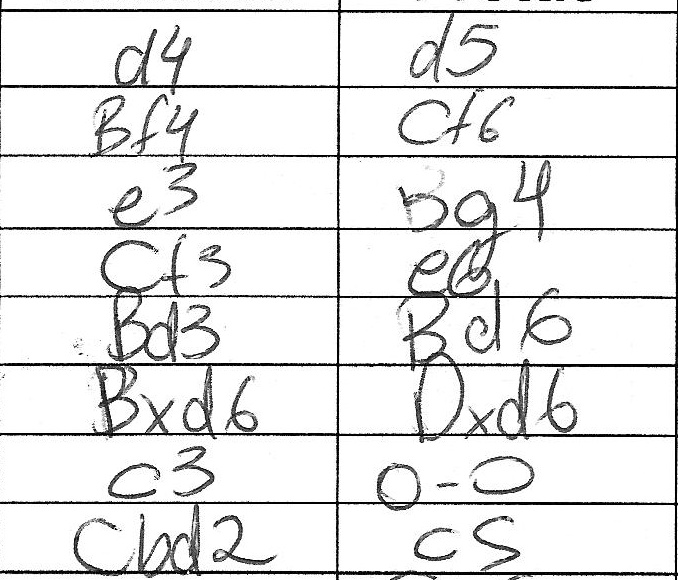 d4 d5
Bf4 Cf6
e3 Bg4
Cf3 e6
Bd3 Bd6
Bxd6 Dxd6
c3 0-0
Cbd2 c5